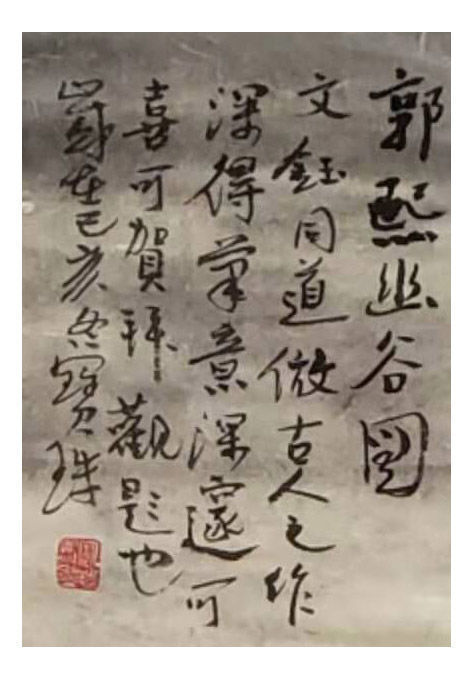 郭熙幽谷图
文鈺同道倣古人之作
深得筆意深邃可
喜可賀拜觀題也
歲在己亥冬寶珠